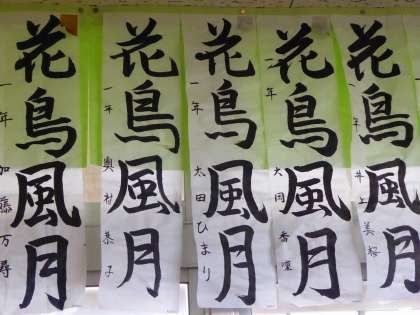 花鳥風月
一年 加藤万尋
花鳥風月
一年 奥村恭子
花鳥風月
一年 太田ひまり
花鳥風月
一年 大岡香凜
花鳥風月
一年 井上美桜